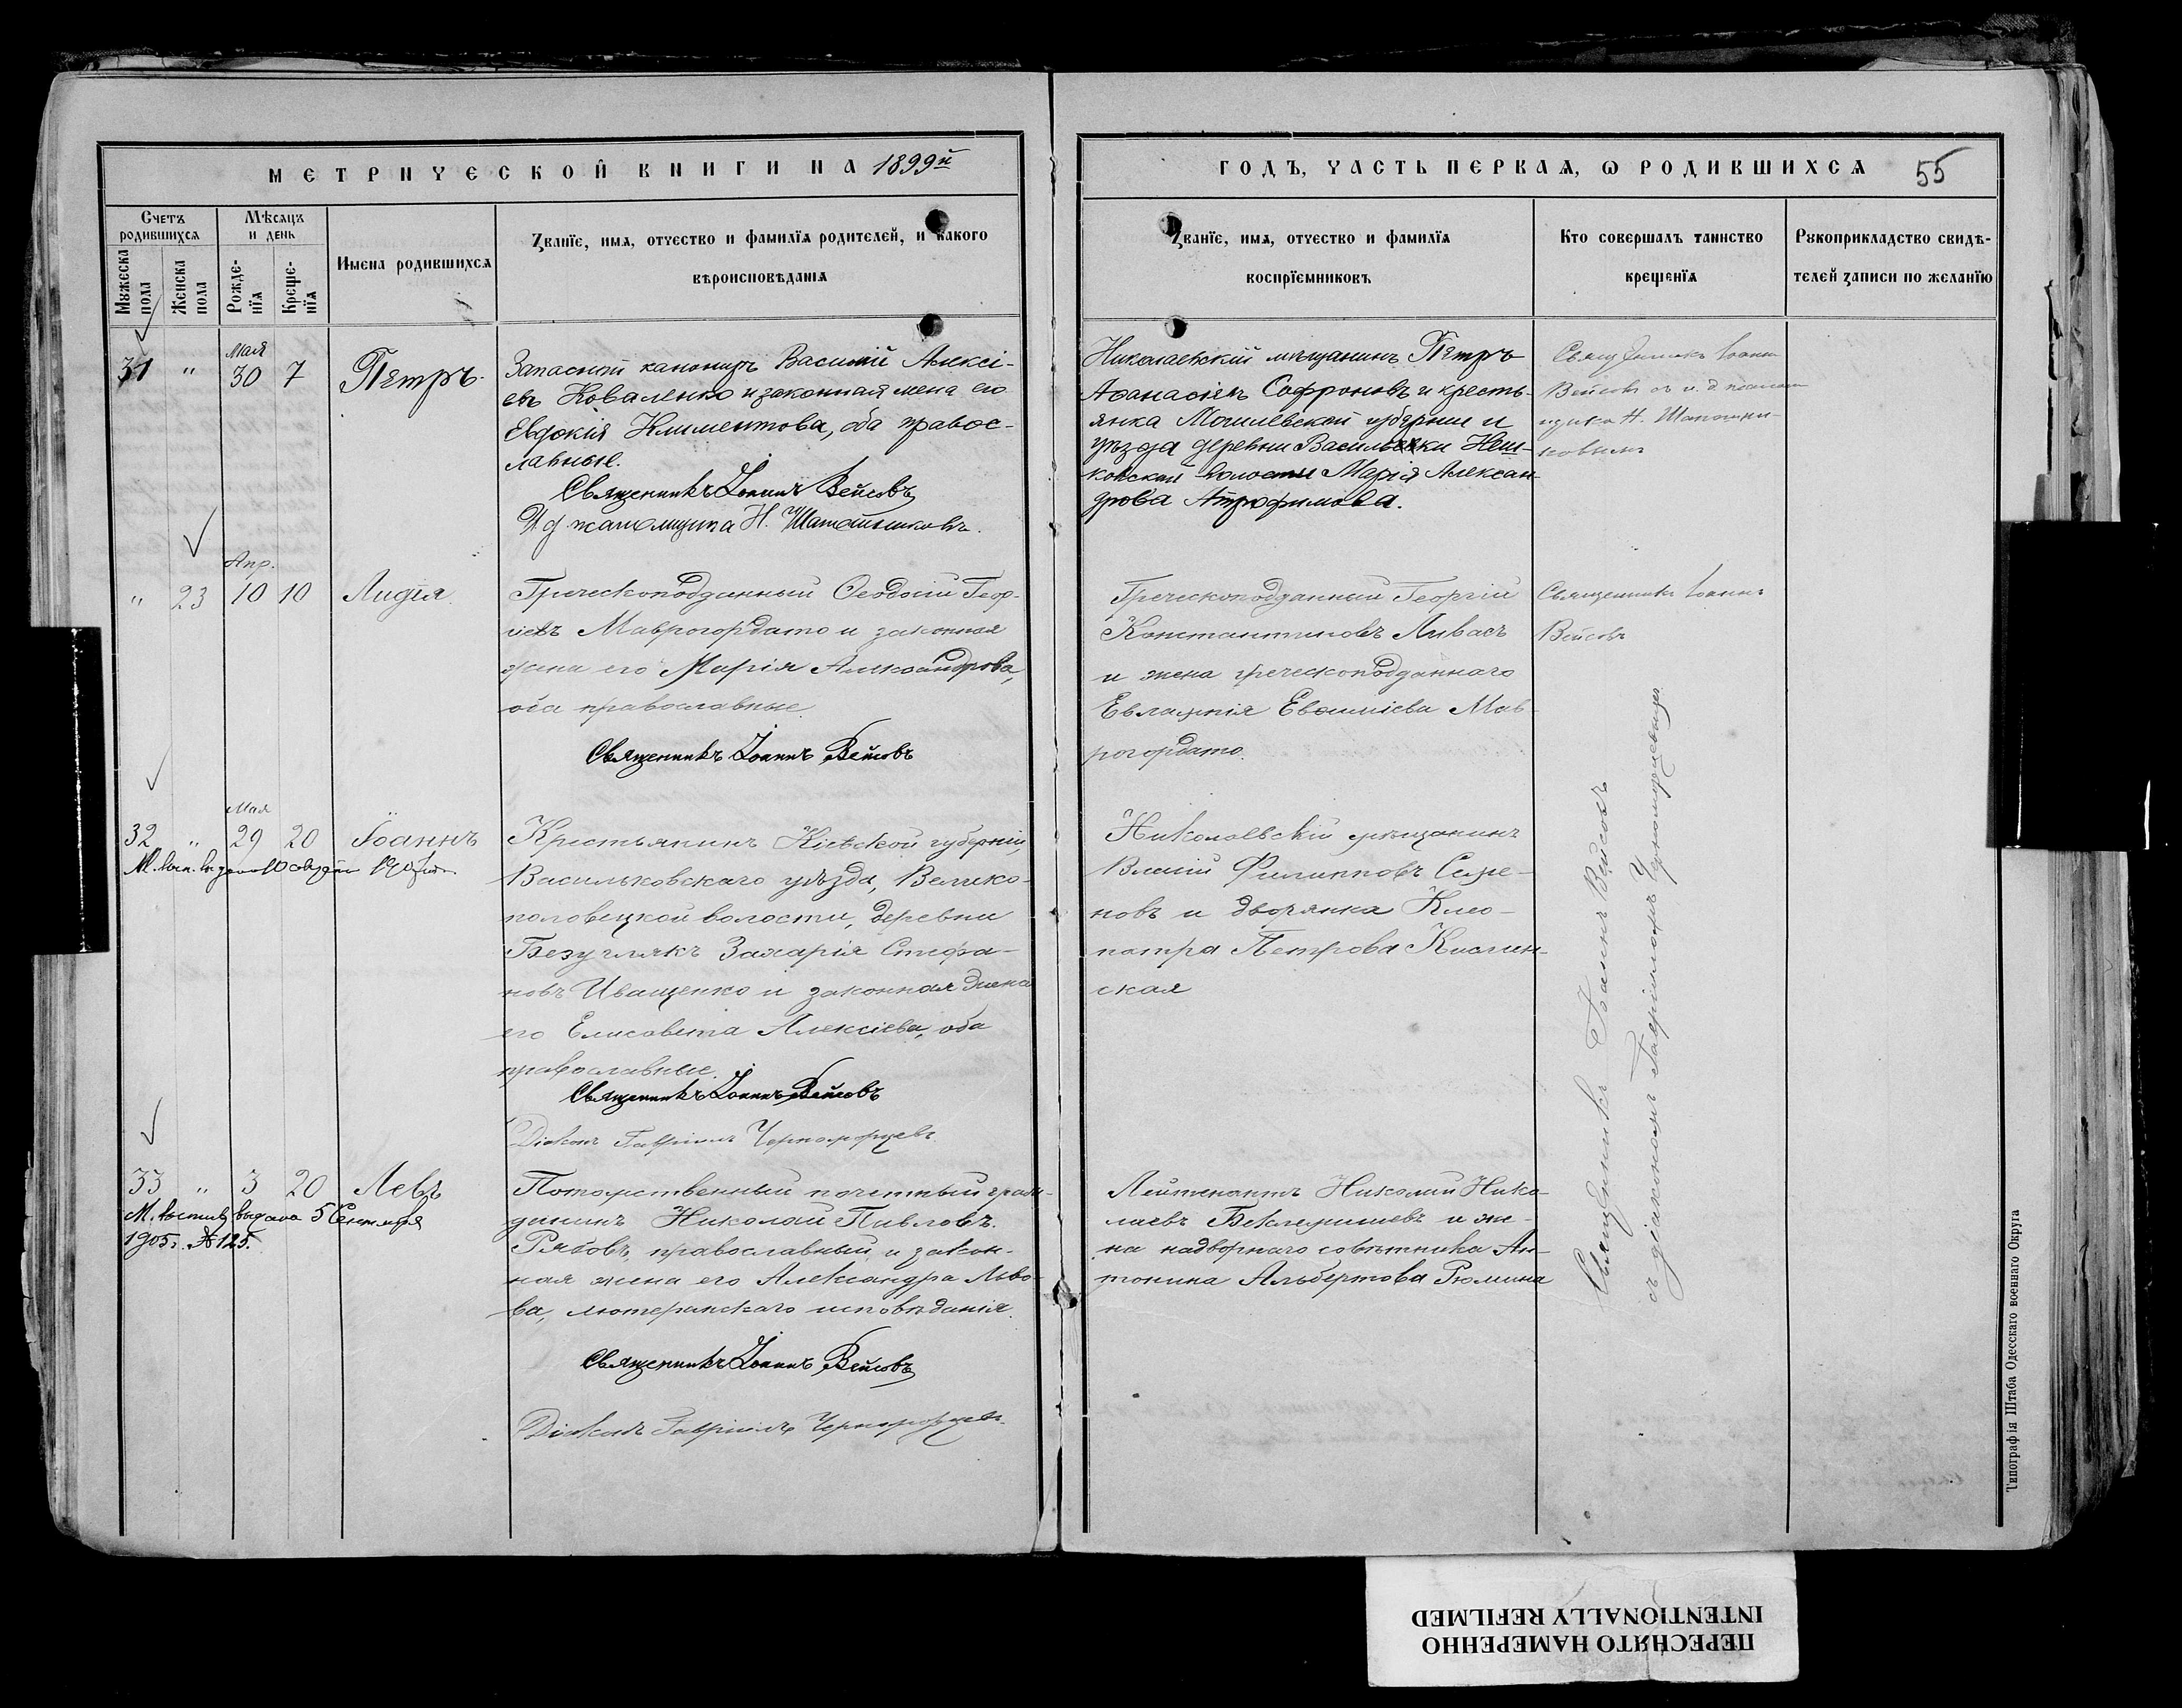 МЕТРИЧЕСКОЙ КНИГИ НА 1899й
ГОДЪ, ЧАСТЬ ПЕРВАЯ, Ѡ РОДИВШИХСѦ
55
Счетъ родившихсѧ
Мѣсѧцъ и день
Мужеска пола
Женска пола
Рожденїѧ
Крещенїѧ
Имена родившихсѧ
Званїе, имѧ, отчество и фамилїѧ родителей, и какого
вѣроисповѣданїѧ
Званїе, имѧ, отчество и фамилїѧ
воспрїемниковъ
Кто совершалъ таинство
крещенїѧ
Рукоприкладство свидѣ-
телей записи по желанїю
31 " Мая 30 7 Петръ
Запасный канониръ Василій Алексі-
евъ Коваленко и законная жена его
Евдокія Климентова, оба правос-
лавные.
Священникъ Іоаннъ Вейсовъ
И. д. псаломщика Н. Шапошниковъ.
Николаевскій мѣщанинъ Петръ
Аѳанасіевъ Софроновъ и кресть-
янка Могилевской губерніи и
уѣзда деревни Васильки
ковской волости Марія Алексан-
дрова Атрофимова.
Священникъ Іоаннъ
Вейсовъ съ и. д. псалом
щика Н. Шапошни-
ковымъ
" 23 Апр. 10 10 Лидія
Греческоподданный Ѳеодосій Геор-
гіевъ Маврогордато и законная
жена его Марія Александрова,
оба православные
Священникъ Іоаннъ Вейсовъ
Греческоподданный Георгій
Константиновъ Ливасъ
и жена греческоподданнаго
Евлампія Мав-
рогордато.
Священникъ Іоаннъ
Вейсовъ
32 " Мая 29 20 Іоаннъ
Крестьянинъ Кіевской губерніи,
Васильковскаго уѣзда, Велико-
половецкой волости, деревни
Безуглякъ Захарія Стефа-
новъ Иващенко и законная жена
его Елисавета Алексіева, оба
православные.
Священникъ Іоаннъ Вейсовъ
Діаконъ Гавріилъ Черноморцевъ
Николаевскій мѣщанинъ
Власій Филипповъ Семе-
новъ и дворянка Клео-
патра Петрова Кислин-
ская
Священникъ Іоаннъ Вейсовъ
съ діакономъ Гавріиломъ Черноморцевымъ
33 " 3 20 Левъ
М. выпись выдана 5 Сентября
1905г. № 125.
Потомственный почетный граж-
данинъ Николай Павловъ
Рябовъ, православный, и закон-
ная жена его Александра Льво-
ва, лютеранскаго исповѣданія.
Священникъ Іоаннъ Вейсовъ
Діаконъ Гавріилъ Черноморцевъ
Лейтенантъ Николай Нико-
лаевъ Беклемишевъ и же-
на надворнаго совѣтника Ан-
тонина Альбертова Рюмина
Типографія Штаба Одесскаго военнаго Округа
ПЕРЕСНЯТО НАМЕРЕННО
INTENTIONALLY REFILMED